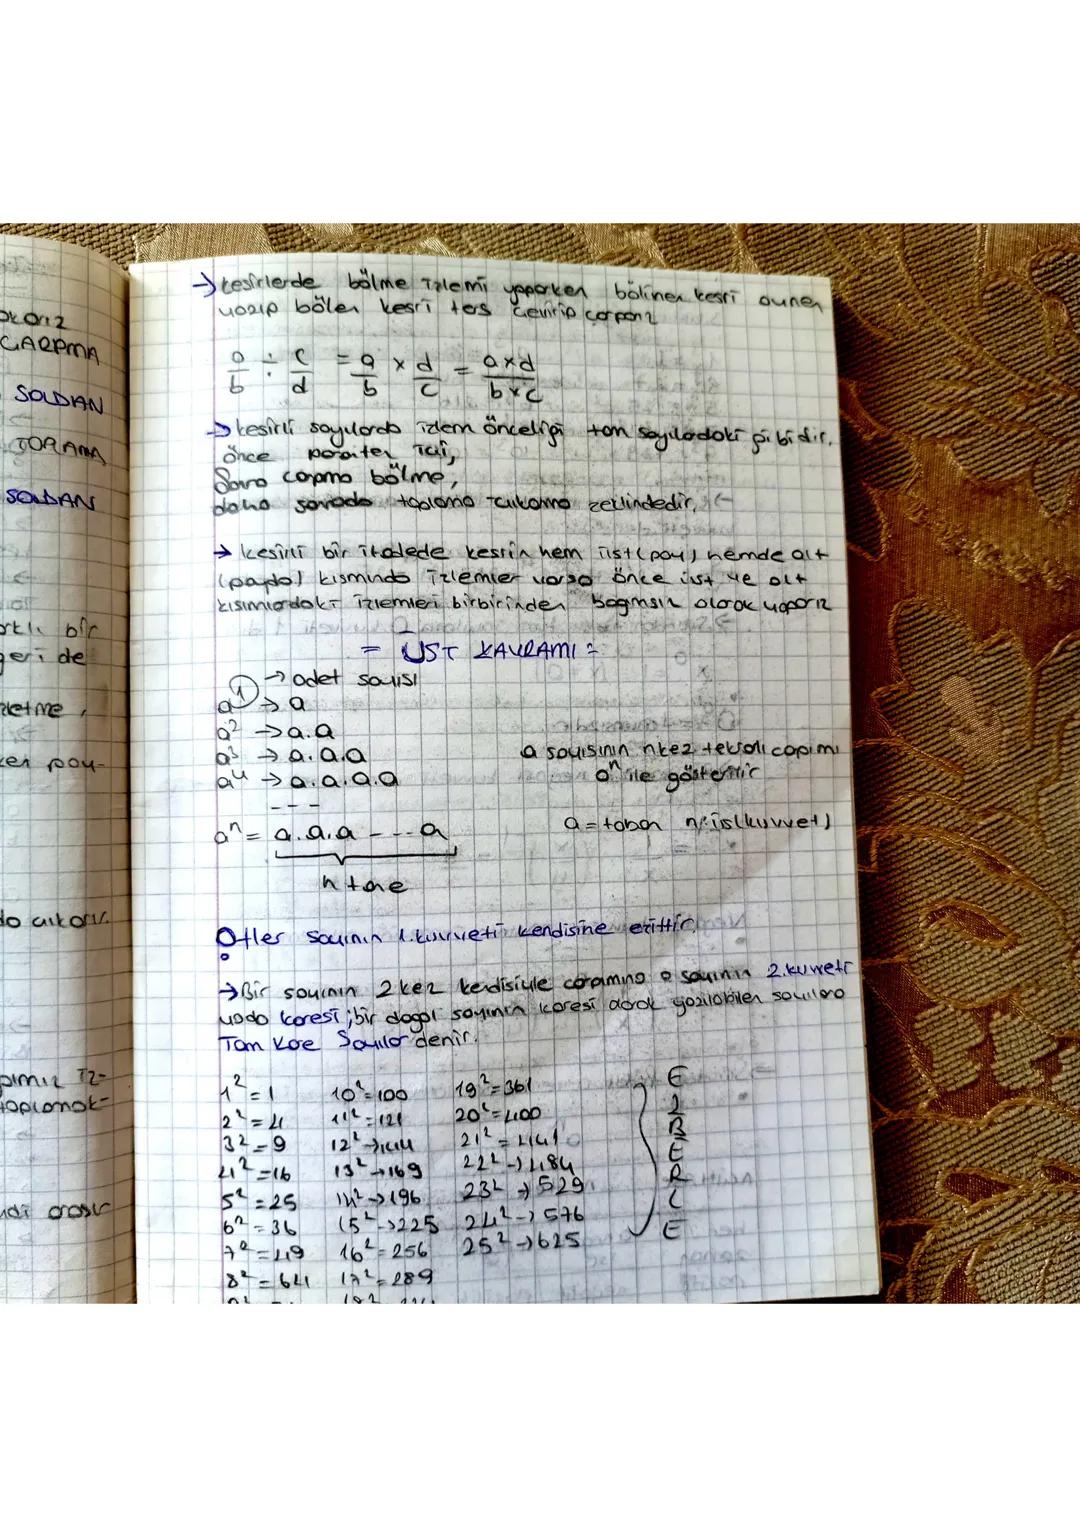 OKarız
ÇARPMA
SOLDAN
TOPLAMA
SOLDAN
bir
geri de
zletme,
ken pay-
da çıkarız.
pımız İz-
toplamak-
→ kesirlerde bölme işlemi yaparken bölünen kesri aynen
yazıp bölen kesri ters çevirip çarparız
a/b ÷ c/d = a/b × d/c = a×d/b×c
→ kesirli sayılarda işlem önceliği tam sayıladaki gibidir.
önce parantez içi,
Sonra çarpma bölme,
daha sonrada toplama çıkarma şeklindedir,
→ kesirli bir ifadede kesrin hem üst (pay) hemde alt
(payda) kısmında işlemler varsa önce üst ve alt
kısımlardaki işlemleri birbirinden bagmsız olarak yaparız
= ÜST KAVRAMI =
→ adet sayısı
a¹ → a
a² → a.a
a³ → a.a.a
a⁴ → a.a.a.a
a sayısının n kez tekrarlı çapımı
aⁿ ile gösterilir
- - -
aⁿ = a.a.a - - - a
a = taban n: üs (kuvvet)
n tane
Her sayının 1.kuvveti kendisine eşittir.
→ Bir sayının 2 kez kendisiyle çarpımına o sayının 2.kuvveti
yada karesi ; bir dogal sayının karesi olarak yazılabilen sayılara
Tam Kare Sayılar denir.
1² = 1 10² = 100 19² = 361
2² = 4 11² = 121 20² = 400
3² = 9 12² → 144 21² = 441
4² = 16 13² → 169 22² → 484
5² = 25 14² → 196 23² → 529
6² = 36 15² → 225 24² → 576
7² = 49 16² = 256 25² → 625
8² = 64 17² = 289
E
Z
B
E
R
L
E